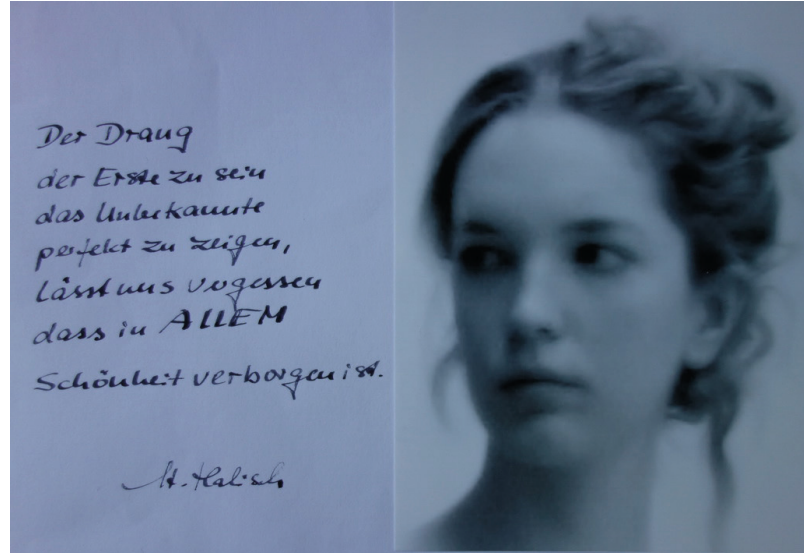 Der Drang
der Erste zu sein
das Unbekannte
perfekt zu zeigen,
lässt uns vergessen
dass in ALLEM
Schönheit verborgen ist.
H. Halisch